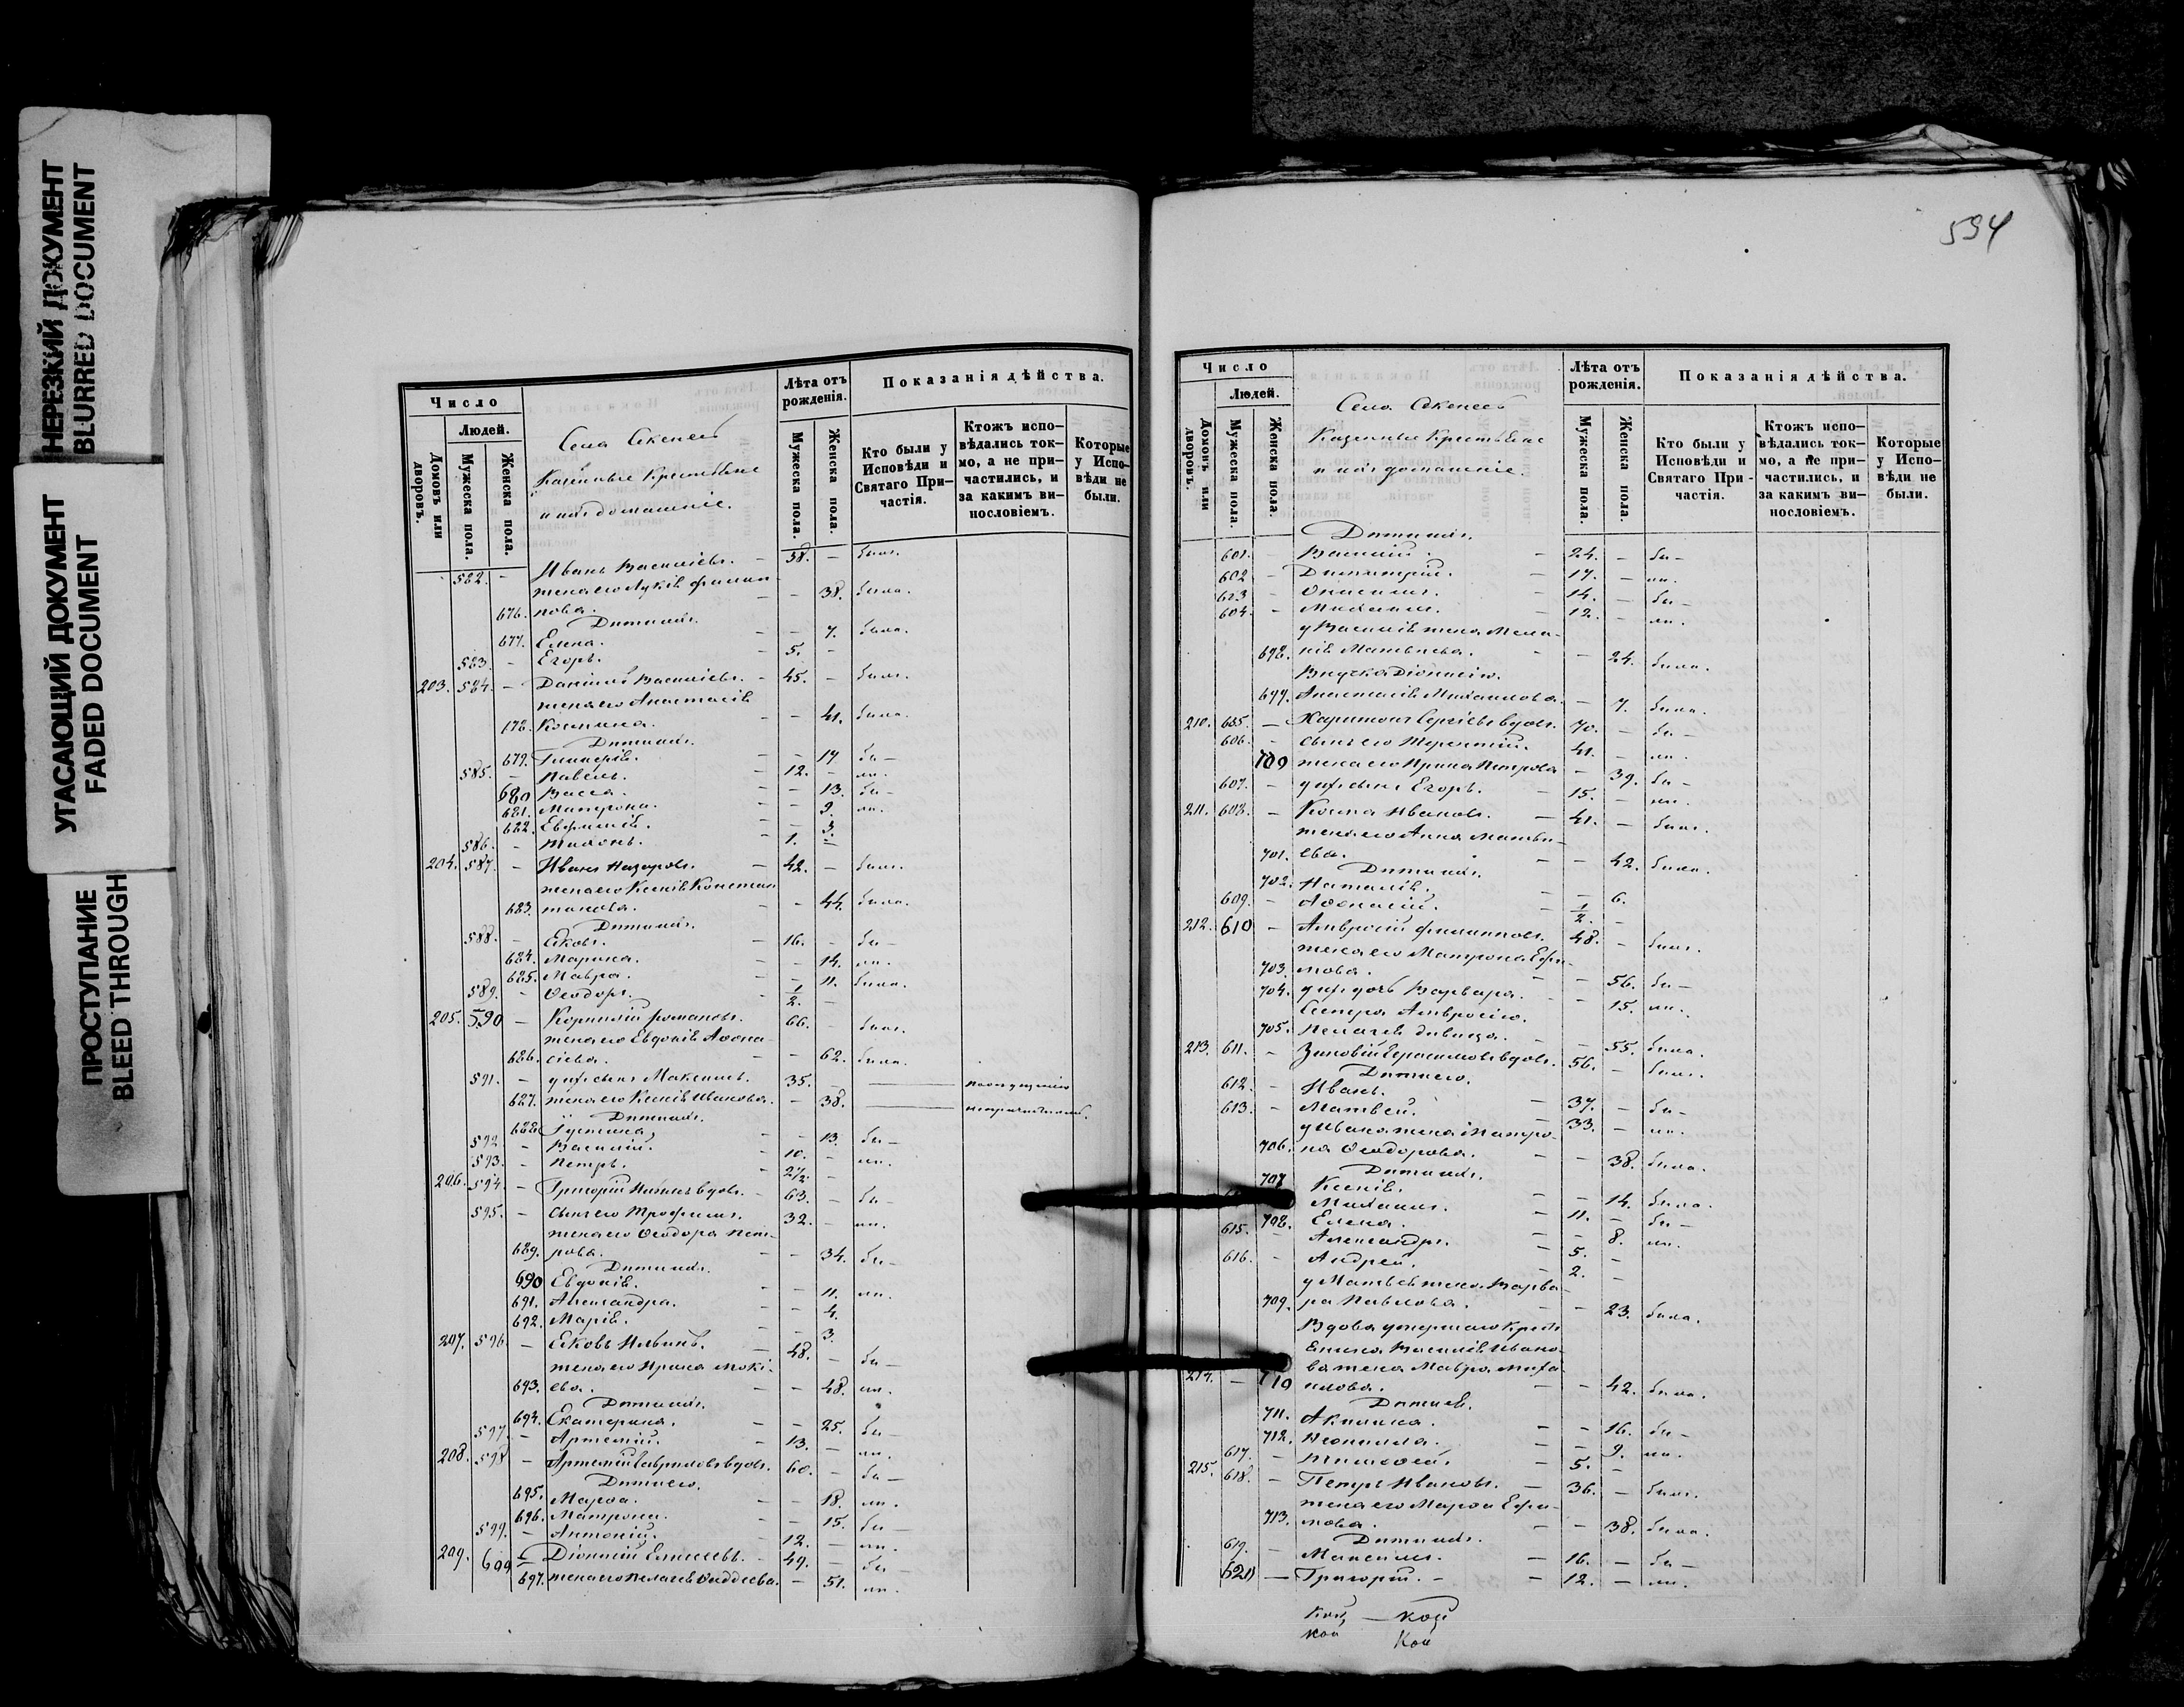 НЕРЕЗКИЙ ДОКУМЕНТ
BLURRED DOCUMENT
УГАСАЮЩИЙ ДОКУМЕНТ
FADED DOCUMENT
ПРОСТУПАНИЕ
BLEED THROUGH
Число
Людей.
Домовъ или дворовъ.
Мужеска пола.
Женска пола.
Села
Казенные Крестьяне
и ихъ домашніе.
Лѣта отъ рожденія.
Мужеска пола.
Женска пола.
Показанія дѣйства.
Кто были у Исповѣди и Святаго Причастія.
Ктожъ исповѣдались токмо, а не причастились, и за какимъ винословіемъ.
Которые у Исповѣди не были.
582. - Иванъ Васильевъ. - 38. - былъ.
жена его Лукія Филип-
676. пова. - - 38. была.
Дѣти ихъ.
677. Елена. - - 7. была.
583. - Егоръ. - 5. -
203. 584. - Даніилъ Васильевъ. - 45. - былъ.
жена его Анастасія
678. Космина. - - 41. была.
Дѣти ихъ.
679. Гликерія. - - 17 бы-
585. - Павелъ. - 12. - ли.
680 Васса. - - 13. бы-
681. Матрона. - - 9. ли.
682. Евфимія. - - 3.
586. - Тихонъ. - 1. -
204. 587. - Иванъ Назаровъ. - 42. - былъ.
жена его Ксенія Констан
683. тинова. - - 44. была.
Дѣти ихъ.
588. - Яковъ. - 16. - бы-
684. Марина. - - 14. ли.
685. Мавра. - - 11. была.
589. - Ѳеодоръ. - 1/2. -
205. 590 - Корнилій Романовъ. 66. - былъ.
жена его Евдокія Аѳона-
686. сіева. - - 62. была.
591. - у ихъ сынъ Максимъ. 35. -
687. жена его Ксенія Иванова. - 38.
Дѣти ихъ.
688 Іустина - - 13. бы-
592 - Василій. - 10. - ли.
593. - Петръ. - 2 1/2 -
206. 594. - Григорій вдовъ. - 63. - бы-
595. - сынъ его Трофимъ. 32. - ли.
жена его Ѳеодора Пет-
689. рова. - - 34. бы-
Дѣти ихъ.
690 Евдокія. - - 11. ли.
691. Александра. - - 4.
692. Марія. - - 3.
207. 596. - Яковъ Ильинъ. - 48. - бы-
жена его Ирина Моки-
693. ева. - - 48. ли.
Дѣти ихъ.
694. Екатерина. - - 25. бы-
597. - Артемій. - 13. - ли.
208. 598 - Артемій Гавриловъ вдовъ. 60. - бы-
Дѣти его.
695. Марѳа. - - 18. ли.
696. Матрона. - - 15. бы-
599. - Антоній. - 12. - ли.
209. 600 - Діонисій Елисеевъ. - 49. - бы-
697. жена его Пелагія Ѳаддеева. - 51. ли.
594
Число
Людей.
Домовъ или дворовъ.
Мужеска пола.
Женска пола.
Села
Казенные Крестьяне
и ихъ домашніе.
Лѣта отъ рожденія.
Мужеска пола.
Женска пола.
Показанія дѣйства.
Кто были у Исповѣди и Святаго Причастія.
Ктожъ исповѣдались токмо, а не причастились, и за какимъ винословіемъ.
Которые у Исповѣди не были.
Дѣти ихъ.
601. - Василій. - 24. - бы-
602 - Димитрій. - 17. - ли.
603 - Онисимъ. - 14. - бы-
604. - Михаилъ. - 12. - ли.
у Василія жена Мела-
698. нія Матвѣева. - - 24. была.
Внучка Діонисію.
699. Анастасія Михаилова. - 7. была.
210. 605. - Харитонъ Сергіевъ вдовъ. 70. - бы-
606. - сынъ его Терентій. 41. - ли.
700 жена его Ирина Петрова - 39. бы-
607. - у ихъ сынъ Егоръ. - 15. - ли.
211. 608. - Косма Ивановъ. - 41. - былъ.
жена его Анна Матвѣ-
701. ева. - - 42. была.
Дѣти ихъ.
702. Наталія. - - 6.
609. - Аѳонасій. - 1/2. -
212. 610 - Амвросій Филипповъ. 48. - былъ.
жена его Матрона Ефи-
703. мова. - - 56. бы-
704. у ихъ дочь Варвара. - - 15. ли.
Сестра Амвросію.
705. Пелагія дѣвица. - - 55. была.
213. 611. - Зиновій Герасимовъ вдовъ. 56. - былъ.
Дѣти его.
612. - Иванъ. - 37. - бы-
613. - Матвѣй. - 33. - ли.
у Ивана жена Матро-
706. на Ѳеодорова. - - 38. была.
Дѣти ихъ.
707 Ксенія. - - 14. была.
Михаилъ. - 11. - бы-
708. Елена. - - 8. ли.
615. - Александръ. - 5. -
616. - Андрей. - 2. -
у Матвѣя жена Варва-
709. ра Павлова. - - 23. была.
Вдова умершаго Крест
янина Василія Ивано-
ва жена Мавра Миха-
214. - 710 илова. - - 42. была.
Дѣти ея.
711. Акилина. - - 16. бы-
712. Неонилла. - - 9. ли.
617. - Тимоѳей. - 5. -
215. 618. - Петръ Ивановъ. - 36. - былъ.
жена его Марѳа Ефи-
713. мова. - - 38. была.
Дѣти ихъ.
619. - Максимъ. - 16. - бы-
620 - Григорій. - - 12. - ли.